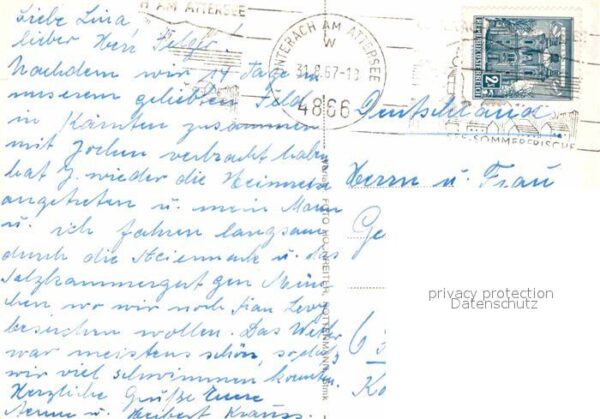 Liebe Lina
lieber Herr Felger
Nachdem wir 14 Tage in
unserem geliebten Feld
in Kärnten zusammen
mit Jochen verbracht haben
hat J. wieder die Heimreise
angetreten u. mein Mann
u. ich fahren langsam
durch die Steiermark u. das
Salzkammergut gen Mün
chen wo wir noch Frau
besuchen wollen. Das Wetter
war meistens schön, sodaß
wir viel schwimmen konnten.
Herzliche Grüße Eure
Aenne u. Heibert Krauss.
H AM ATTERSEE
UNTERACH AM ATTERSEE
W
31.8.67-18
4866
SOMMERFRISCHE
REPUBLIK ÖSTERREICH
Deutschland
Herrn u. Frau
Ge
63
Ko
FOTO KOLNREITER, ROTTENMANN
privacy protection
Datenschutz